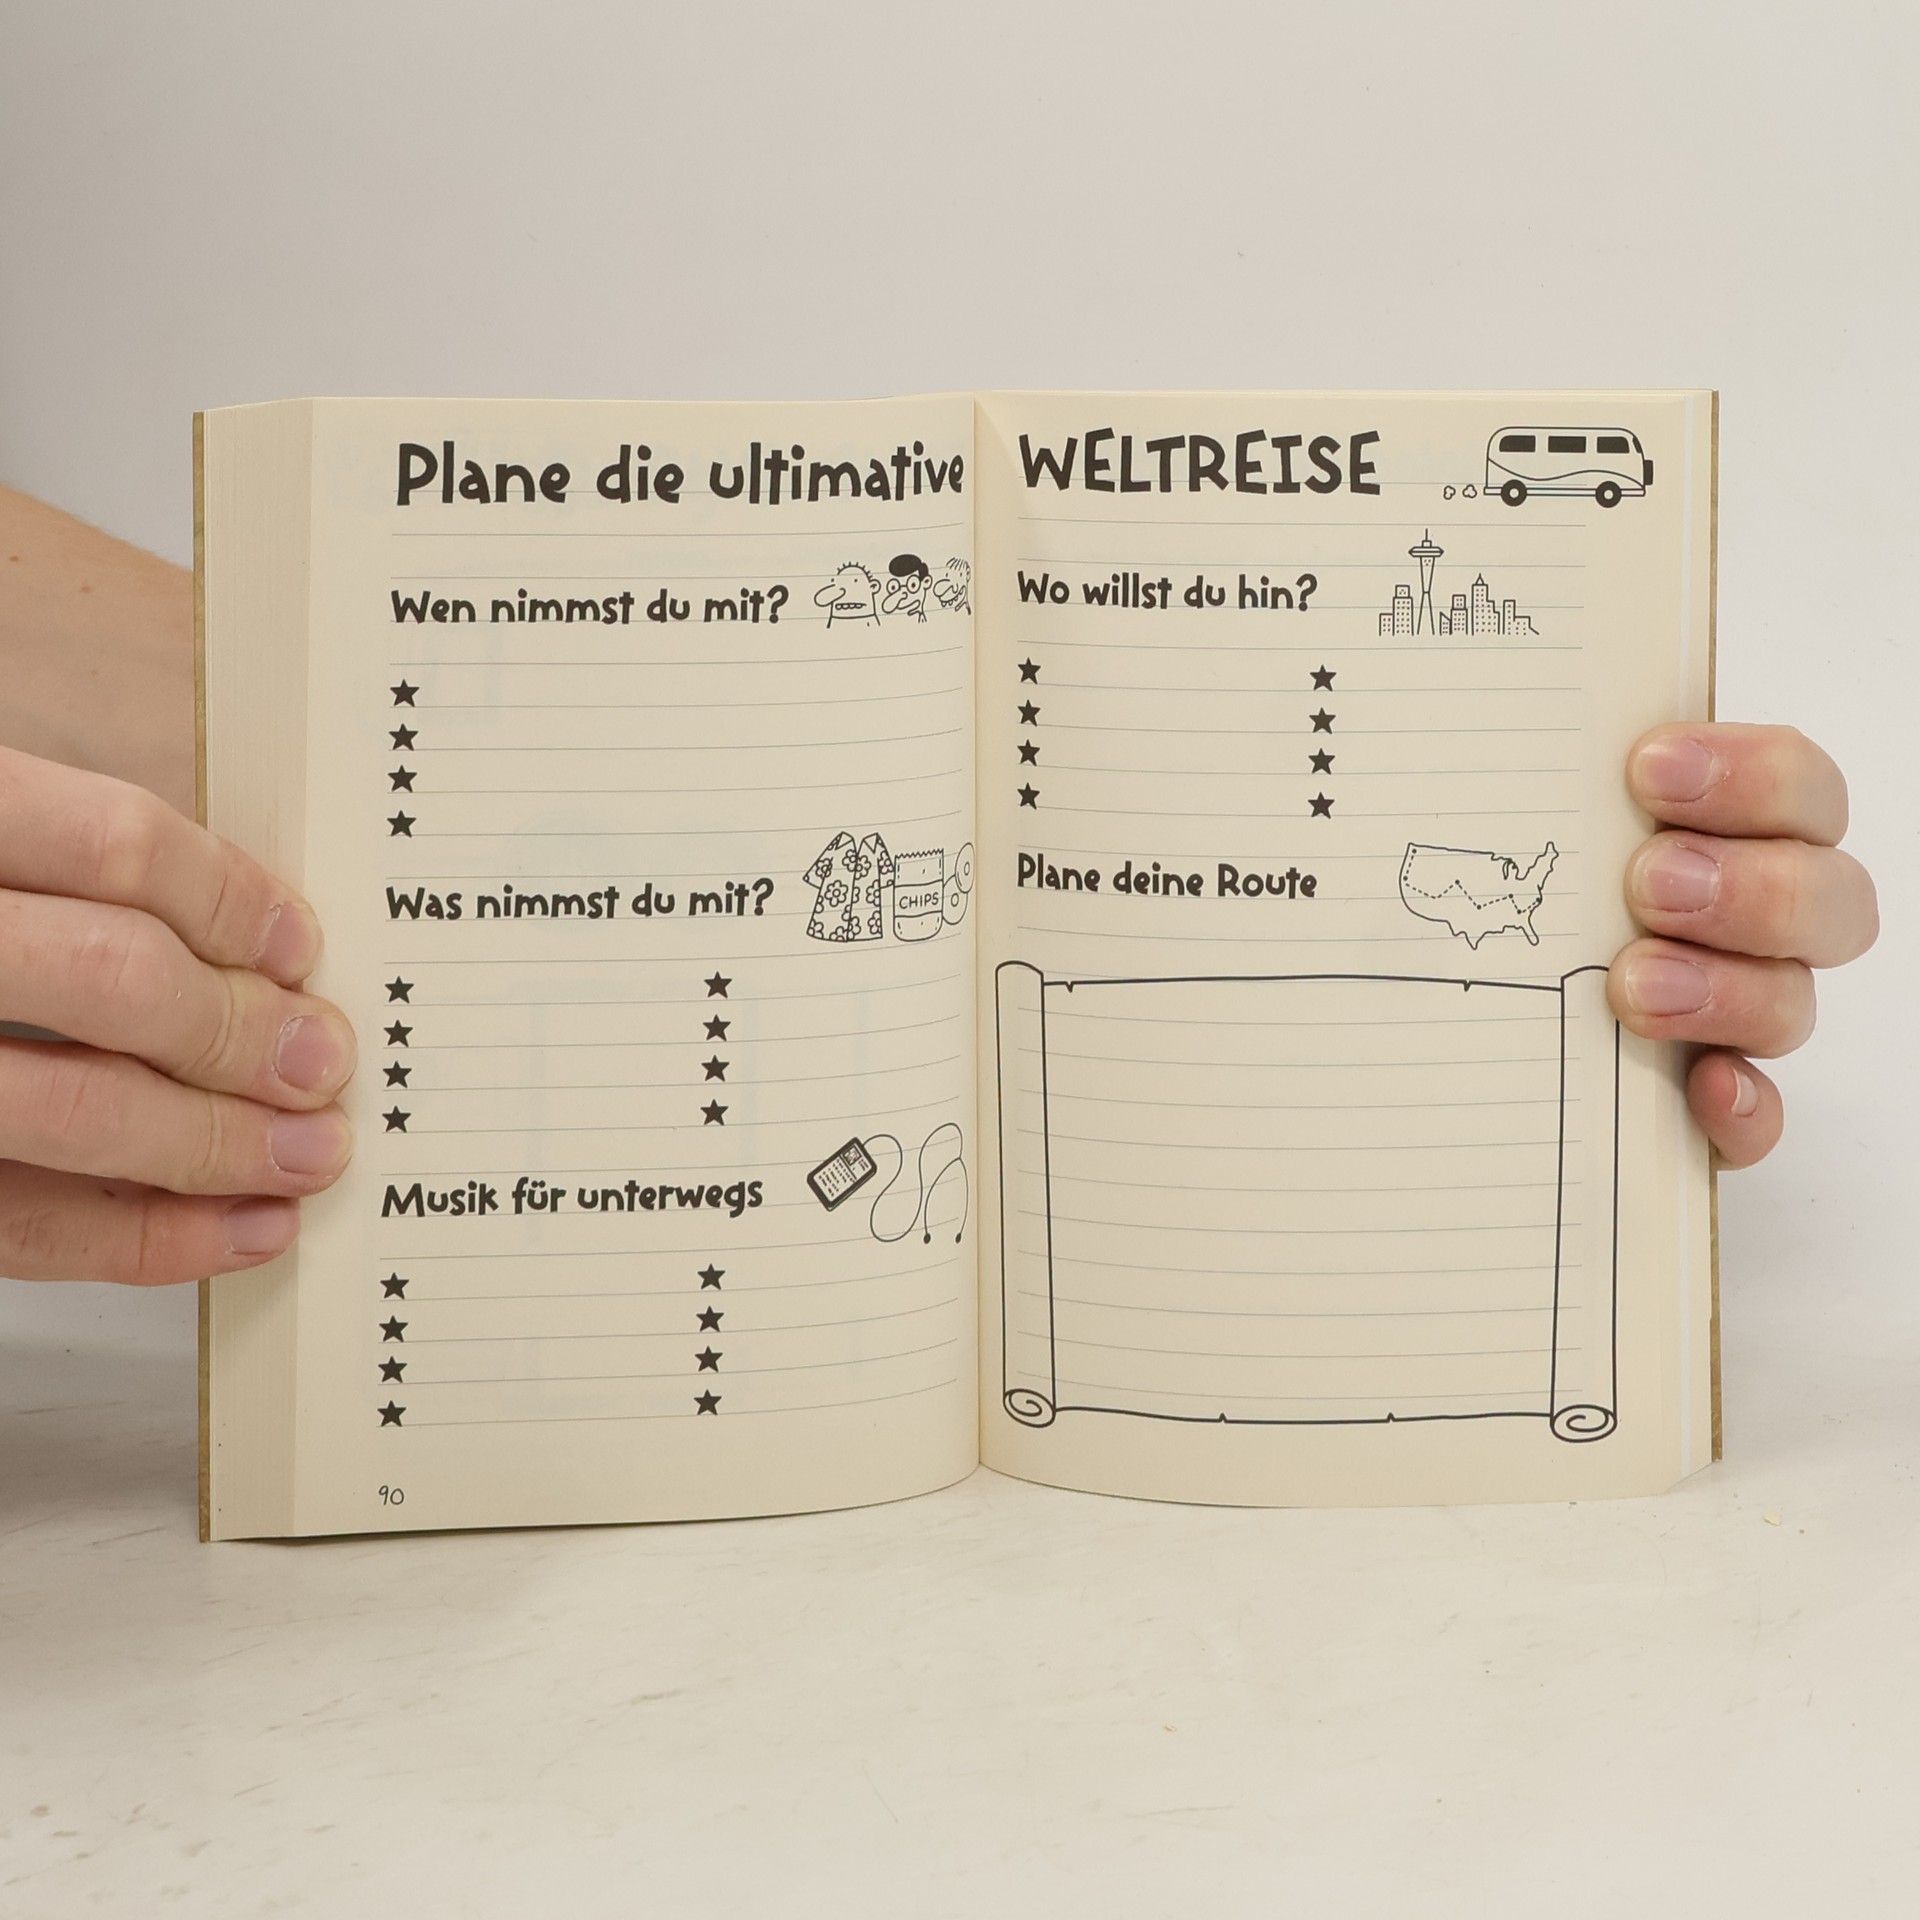 Plane die ultimative WELTREISE
Wen nimmst du mit?
Was nimmst du mit?
CHIPS
Musik für unterwegs
90
Wo willst du hin?
Plane deine Route